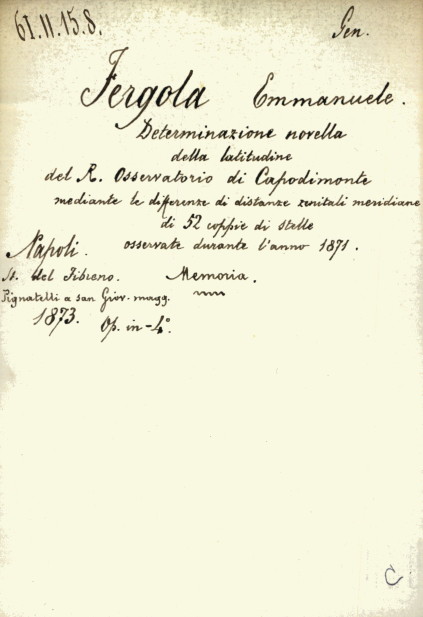 61.11.15.8.
Gen.
Fergola Emmanuele.
Determinazione novella
della latitudine
del R. Osservatorio di Capodimonte
mediante le differenze di distanze zenitali meridiane
di 52 coppie di stelle
osservate durante l'anno 1871.
Memoria.
Napoli.
St. del Fibreno.
Pignatelli a san Giov. magg.
1873. Op. in-4°.
C